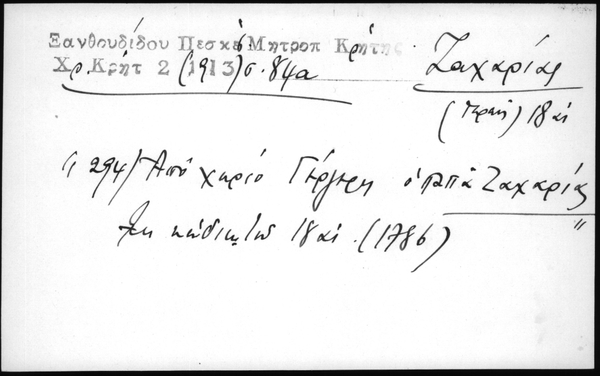 Ξανθουδίδου Πεσκέ Μητροπ Κρήτης
Χρ. Κρήτ 2 (1913) σ. 84α
Ζαχαρίας
18 αι
294/ Από χωριό Γέργερη ο παπά Ζαχαρίας
18 αι. (1786)